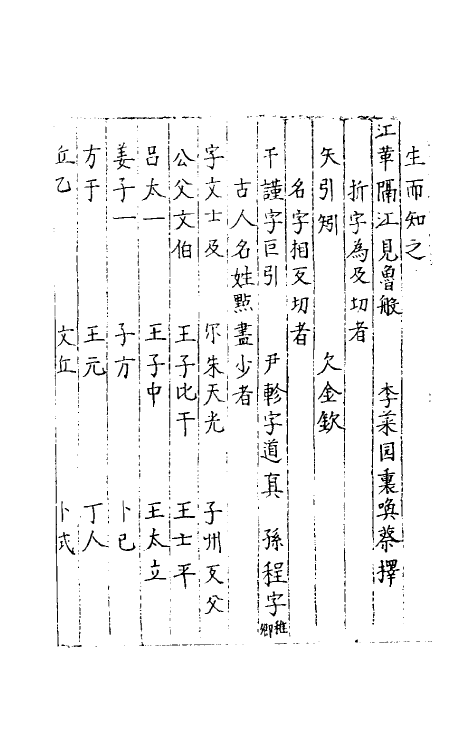 生而知之
江革隔江見魯般 李菓园裏喚蔡擇
折字為反切者
矢引矧 欠金欽
名字相反切者
干謹字巨引 尹軫字道真 孫程字稚卿
古人名姓點畫少者
字文士及 尒朱天光 子州支父
公父文伯 王子比干 王士平
呂太一 王子中 王太立
姜子一 子方 卜已
方于 王元 丁人
丘乙 文丘 卜式